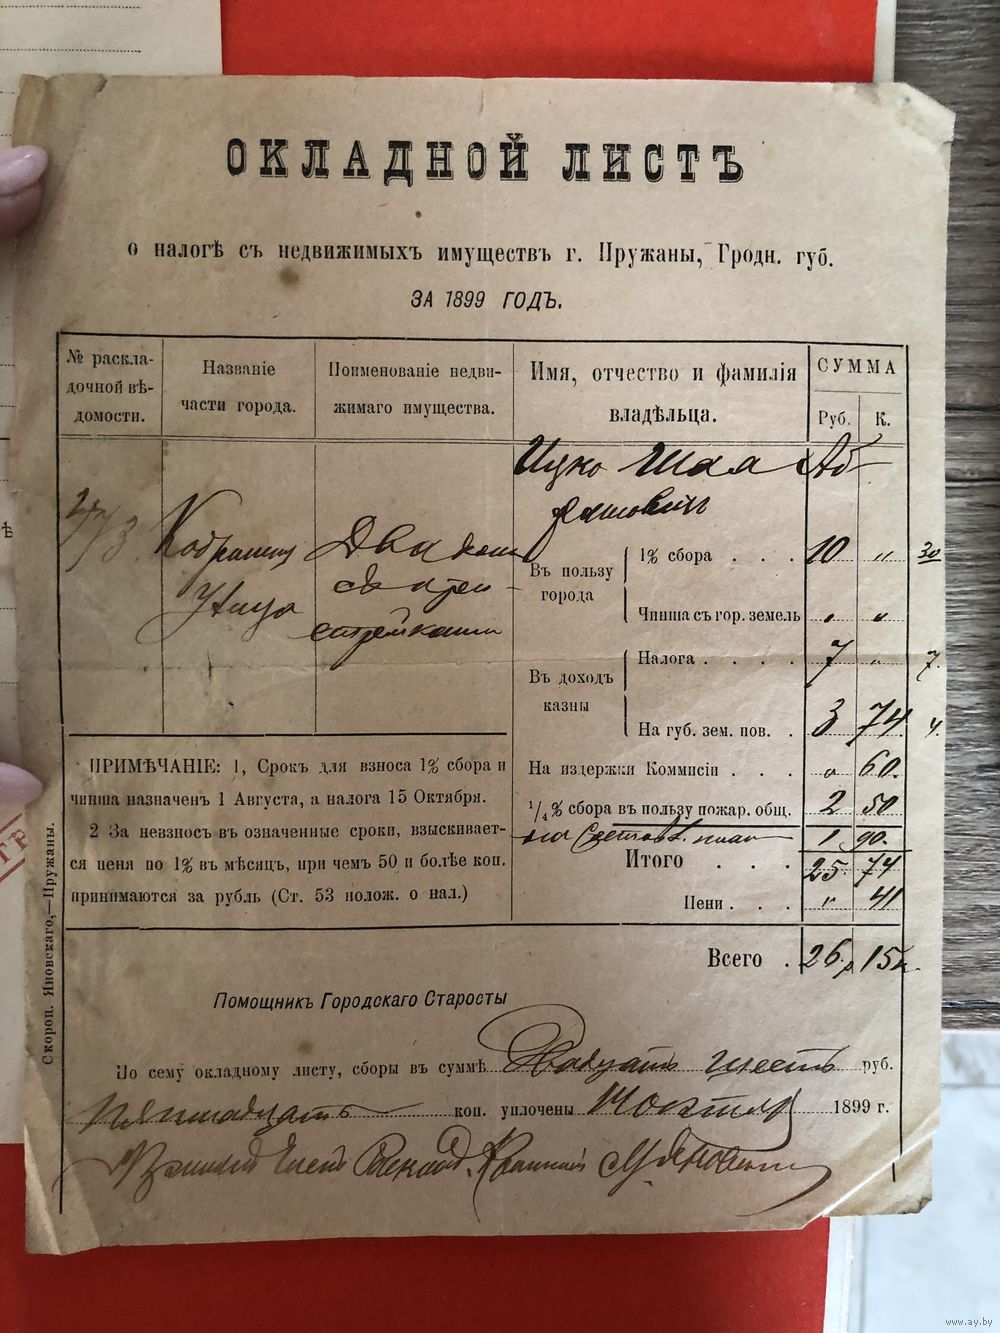 ОКЛАДНОЙ ЛИСТЪ
о налогѣ съ недвижимыхъ имуществъ г. Пружаны, Гродн. губ.
ЗА 1899 ГОДЪ.
№ раскла-
дочной вѣ-
домости.
Названіе
части города.
Поименованіе недви-
жимаго имущества.
Имя, отчество и фамилія
владѣльца.
СУММА
Руб. К.
Ицко Шая Аб
рамовичъ
473
Два
Въ пользу
города
1% сбора . . . 10 „ 30
Чинша съ гор. земель „ „
Въ доходъ
казны
Налога . . . . 7 „ 7.
На губ. зем. пов. . 3 74 4.
На издержки Коммисіи . . . „ 60.
1/4% сбора въ пользу пожар. общ. 2 50
1 90.
Итого . . . 25 74
Пени . . . „ 41
Всего . 26 р 15 к.
ПРИМѢЧАНІЕ: 1, Срокъ для взноса 1% сбора и
чинша назначенъ 1 Августа, а налога 15 Октября.
2 За невзносъ въ означенные сроки, взыскивает-
ся пеня по 1% въ мѣсяцъ, при чемъ 50 и болѣе коп.
принимаются за рубль (Ст. 53 полож. о нал.)
Скороп. Яновскаго,—Пружаны.
Помощникъ Городскаго Старосты
По сему окладному листу, сборы въ суммѣ Двадцать шесть руб.
пятнадцать коп. уплочены 1899 г.
www.ay.by